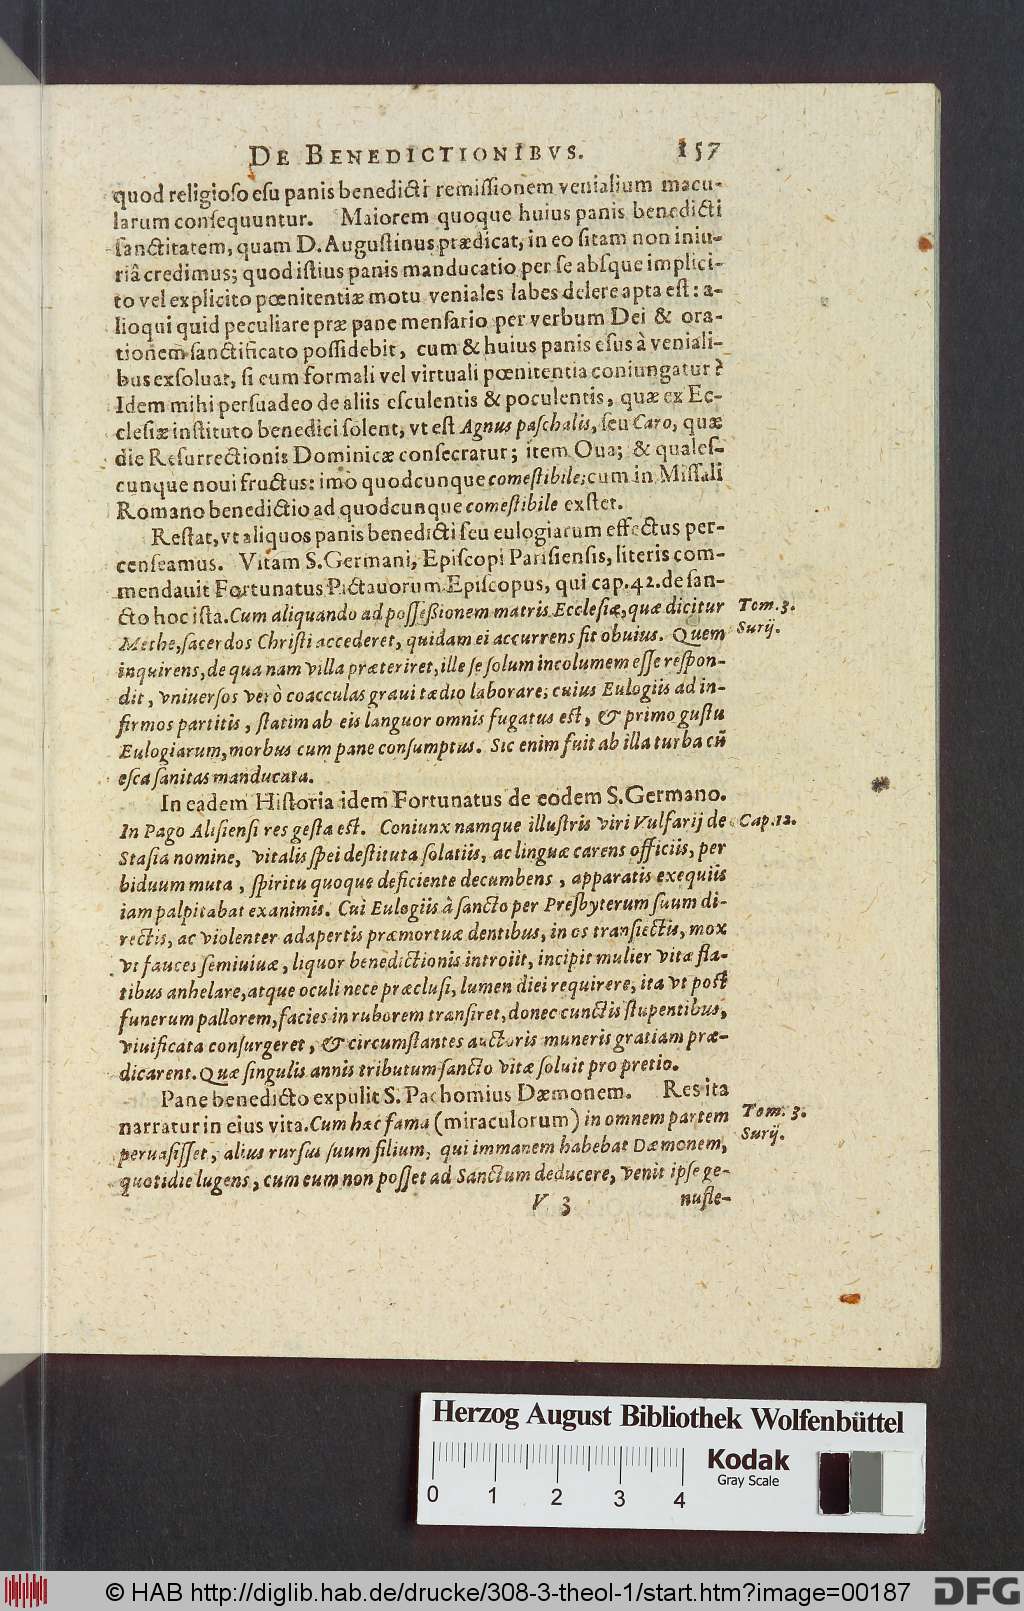 DE BENEDICTIONIBVS. 157
quod religioso esu panis benedicti remissionem venialium macu-
larum consequuntur. Maiorem quoque huius panis benedicti
sanctitatem, quam D. Augustinus prædicat, in eo sitam non iniu-
riâ credimus; quod istius panis manducatio per se absque implici-
to vel explicito pœnitentiæ motu veniales labes delere apta est: a-
lioqui quid peculiare præ pane mensario per verbum Dei & ora-
tionem sanctificato possidebit, cum & huius panis esus à veniali-
bus exsoluat, si cum formali vel virtuali pœnitentia coniungatur?
Idem mihi persuadeo de aliis esculentis & poculentis, quæ ex Ec-
clesiæ instituto benedici solent, vt est Agnus paschalis, seu Caro, quæ
die Resurrectionis Dominicæ consecratur; item Oua; & quales-
cunque noui fructus: imò quodcunque comestibile; cum in Missali
Romano benedictio ad quodcunque comestibile exstet.
Restat, vt aliquos panis benedicti seu eulogiarum effectus per-
censeamus. Vitam S. Germani, Episcopi Parisiensis, literis com-
mendauit Fortunatus Pictauorum Episcopus, qui cap. 42. de san-
cto hoc ista. Cum aliquando ad possessionem matris Ecclesiæ, quæ dicitur
Tom. 3.
Methe, sacerdos Christi accederet, quidam ei accurrens fit obuius. Quem
Surij.
inquirens, de qua nam villa præteriret, ille se solum incolumem esse respon-
dit, vniuersos verò coacculas graui tædio laborare; cuius Eulogiis ad in-
firmos partitis, statim ab eis languor omnis fugatus est, & primo gustu
Eulogiarum, morbus cum pane consumptus. Sic enim fuit ab illa turba cū
esca sanitas manducata.
In eadem Historia idem Fortunatus de eodem S. Germano.
In Pago Alisiensi res gesta est. Coniunx namque illustris viri Vulfarij de
Cap. 12.
Stasia nomine, vitalis spei destituta solatiis, ac linguæ carens officiis, per
biduum muta, spiritu quoque deficiente decumbens, apparatis exequiis
iam palpitabat exanimis. Cui Eulogiis à sancto per Presbyterum suum di-
rectis, ac violenter adapertis præmortuæ dentibus, in os transiectis, mox
vt fauces semiuiuæ, liquor benedictionis introiit, incipit mulier vitæ fla-
tibus anhelare, atque oculi nece præclusi, lumen diei requirere, ita vt post
funerum pallorem, facies in ruborem transiret, donec cunctis stupentibus,
viuificata consurgeret, & circumstantes auctoris muneris gratiam præ-
dicarent. Quæ singulis annis tributum sancto vitæ soluit pro pretio.
Pane benedicto expulit S. Pachomius Dæmonem. Res ita
narratur in eius vita. Cum hæc fama (miraculorum) in omnem partem
Tom. 3.
peruasisset, alius rursus suum filium, qui immanem habebat Dæmonem,
Surij.
quotidie lugens, cum eum non posset ad Sanctum deducere, venit ipse ge-
V 3 nusle-
Herzog August Bibliothek Wolfenbüttel
Kodak
Gray Scale
0 1 2 3 4
© HAB http://diglib.hab.de/drucke/308-3-theol-1/start.htm?image=00187
DFG